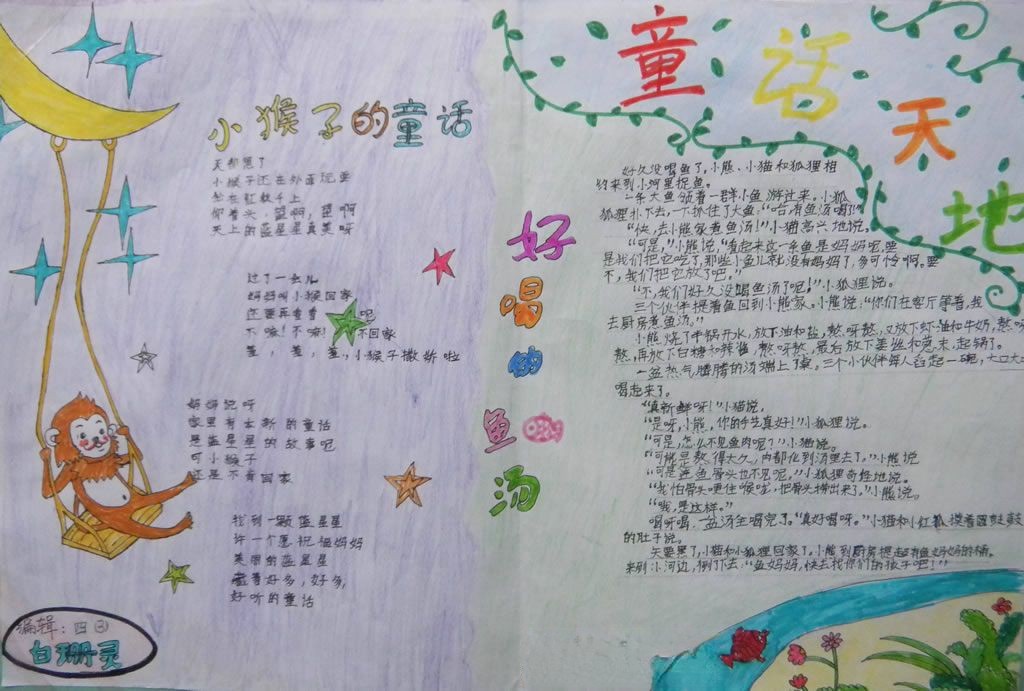 童话天地
小猴子的童话
天都黑了
小猴子还在外面玩耍
坐在秋千上
仰着头,望啊,望啊
天上的蓝星星真美呀
过了一会儿
妈妈叫小猴回家
还要再看看 呢
不嘛!不嘛! 不回家
羞,羞,羞,小猴子撒娇啦
妈妈说呀
家里有本新的童话
是蓝星星的故事吧
可小猴子
还是不肯回家
找到一颗蓝星星
许一个愿祝福妈妈
美丽的蓝星星
藏着好多,好多,
好听的童话
编辑:四③
白珊灵
好喝的鱼汤
好久没喝鱼了,小熊、小猫和狐狸相
约来到小河里捉鱼。
一条大鱼领着一群小鱼游过来,小狐
狐狸扑下去,一下抓住了大鱼:“哈,有鱼汤喝了!”
“快,去小熊家煮鱼汤!”小猫高兴地说。
“可是,”小熊说,“看起来这一条鱼是妈妈呢,要
是我们把它吃了,那些小鱼儿就没有妈妈了,多可怜啊。要
不,我们把它放了吧。”
“不,我们好久没喝鱼汤了呢!”小狐狸说。
三个伙伴提着鱼回到小熊家。小熊说:“你们在客厅等着,我
去厨房煮鱼汤。”
小熊烧了半锅开水,放下油和盐,熬呀熬,又放下虾油和牛奶,熬呀
熬,再放下白糖和辣椒,熬呀熬,最后放下姜丝和葱末,起锅了。
一盆热气腾腾的汤端上了桌。三个小伙伴每人舀起一碗,大口大口
喝起来了。
“真新鲜呀!”小猫说,
“是呀,小熊,你的手艺真好!”小狐狸说。
“可是,怎么不见鱼肉呢?”小猫说。
“可能是熬得太久,肉都化到汤里去了。”小熊说
“可是连鱼骨头也不见呢,”小狐狸奇怪地说。
“我怕骨头哽住喉咙,把骨头捞出来了,”小熊说。
“哦,是这样。”
喝呀喝,一盆汤全喝完了。“真好喝呀。”小猫和小红狐摸着圆鼓鼓
的肚子说。
天要黑了,小猫和小狐狸回家了。小熊到厨房提起有鱼妈妈的桶。
来到小河边,倒下去:“鱼妈妈,快去找你们的孩子吧!”